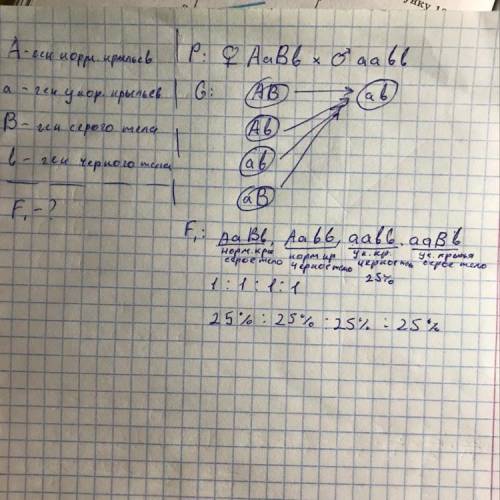 А - ген норм. крыльев
а - ген укор. крыльев
В - ген серого тела
в - ген черного тела
F₁ - ?
P: ♀ АаВв × ♂ аавв
G: АВ ав
Ав
ав
аВ
F₁: АаВв, Аавв, аавв, ааВв
норм. кры норм кр ук. кр. ук. крылья
серое тело черное тело черное серое тело
25%
1 : 1 : 1 : 1
25% : 25% : 25% : 25%